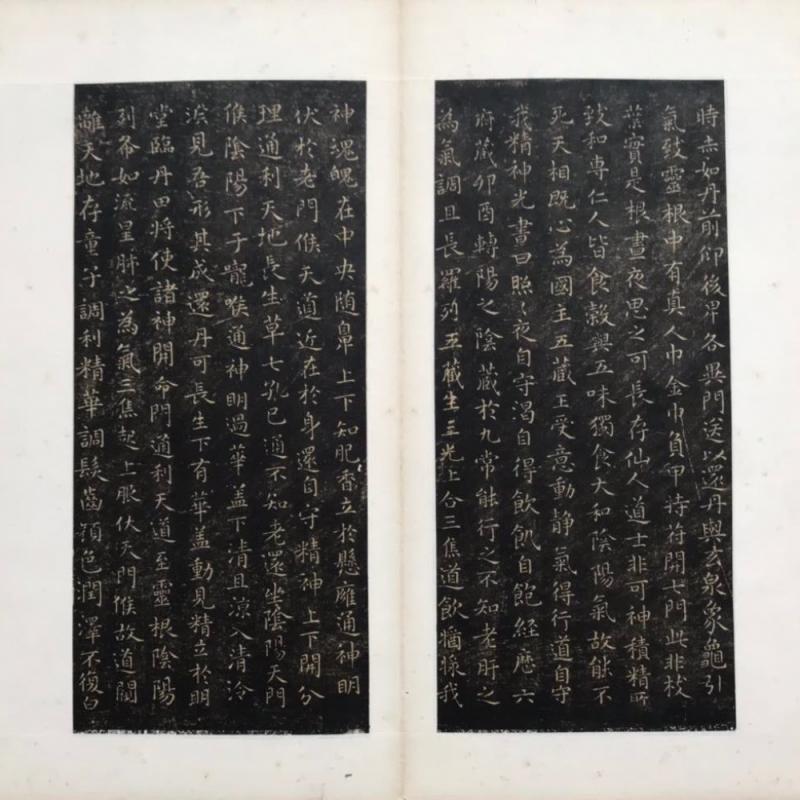 時赤如丹前仰後卑各異門送以還丹與玄泉象龜引
氣致靈根中有真人巾金巾負甲持符開七門此非枝
葉實是根晝夜思之可長存仙人道士非可神積精所
致和專仁人皆食穀與五味獨食大和陰陽氣故能不
死天相既心為國主五藏王受意動静氣得行道自守
我精神光晝日照〻夜自守渴自得飲飢自飽經歷六
府藏卯酉轉陽之陰藏於九常能行之不知老肝之
為氣調且長羅列五藏生三光上合三焦道飲猶漿我
神魂魄在中央随鼻上下知肥香立於懸膺通神明
伏於老門候天道近在於身還自守精神上下開分
理通利天地長生草七孔已通不知老還坐陰陽天門
候陰陽下于嚨喉通神明過華盖下清且涼入清泠
淵見吾形其成還丹可長生下有華盖動見精立於明
堂臨丹田將使諸神開命門通利天道至靈根陰陽
列布如流星肺之為氣三焦起上服伏天門候故道闚
離天地存童子調利精華調髮齒顔色潤澤不復白